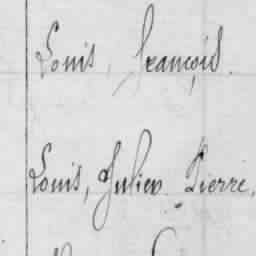 Louis, François.
Louis, Julien Pierre,